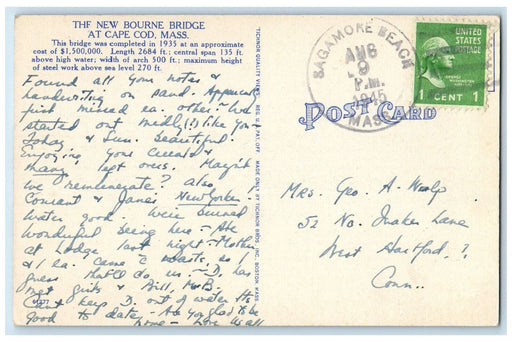 THE NEW BOURNE BRIDGE
AT CAPE COD, MASS.
This bridge was completed in 1935 at an approximate
cost of $1,500,000. Length 2684 ft.; central span 135 ft.
above high water; width of arch 500 ft.; maximum height
of steel work above sea level 270 ft.
Found all your notes &
handwriting on sand. Apparently
just missed ea. other - We
started out like you -
Today & Sun. beautiful.
Enjoying your &
many left overs. Mayn't
we remunerate? also
Conant & Jane's New Yorker.
Water good. We're
Wonderful being here - Ate
at Lodge last night - Mother
& I ea. Came & so I
guess that'll do us. - D. has
met girls & Bill, & B.
Can't keep D. out of water its
good to date - Are you glad to be
home - Love Us all
TICHNOR QUALITY VIEWS REG. U.S. PAT. OFF. MADE ONLY BY TICHNOR BROS. INC. BOSTON MASS
SAGAMORE BEACH
AUG
9
P.M.
1945
MASS.
UNITED
STATES
POSTAGE
GEORGE
WASHINGTON
1 CENT 1
POST CARD
Mrs. Geo. A.
52 No. Quaker Lane
West Hartford 7,
Conn.